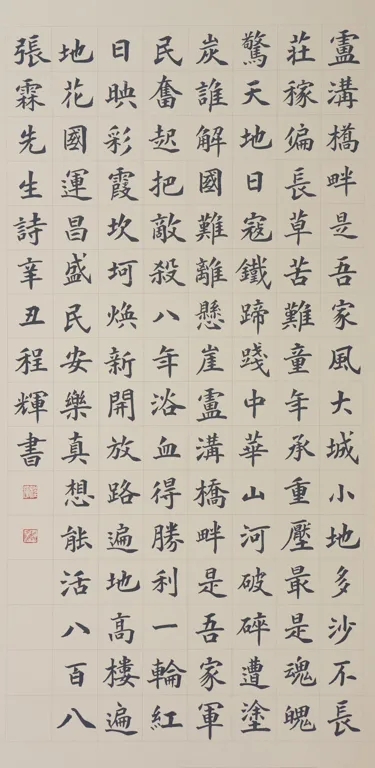 盧溝橋畔是吾家風大城小地多沙不長
莊稼偏長草苦難童年承重壓最是魂魄
驚天地日寇鐵蹄踐中華山河破碎遭塗
炭誰解國難離懸崖盧溝橋畔是吾家軍
民奮起把敵殺八年浴血得勝利一輪紅
日映彩霞坎坷煥新開放路遍地高樓遍
地花國運昌盛民安樂真想能活八百八
張霖先生詩辛丑程輝書